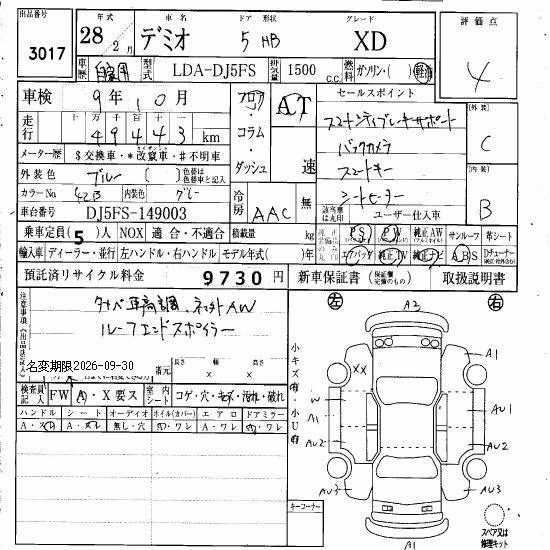 出品番号 3017
年式 28年2月
車名 デミオ
ドア 形状 5 HB
グレード XD
評価点 4
車歴 自家用
型式 LDA-DJ5FS
排気量 1500 c.c.
燃料 ガソリン・( ) 軽油
車検 9年10月
走行 十万千百十 49443 km
メーター歴 $交換車・*改竄車・#不明車
外装色 ブルー
( ) 色替車は色替車と記入
カラーNo 42B 内装色 グレー
車台番号 DJ5FS-149003
フロア・コラム・ダッシュ
AT 速
冷房 AAC 無
セールスポイント
スマートシティブレーキサポート
バックカメラ
スマートキー
シートヒーター
外装 C
内装 B
ユーザー仕入車
乗車定員(5)人 NOX 適合・不適合 積載量 kg
PS PW 純正AW(アルミホイル) サンルーフ 革シート
輸入車 ディーラー・並行 左ハンドル・右ハンドル モデル年式( )年
エアバッグ 純正TV 純正ナビ ABS Dチューナー
預託済リサイクル料金 9730円
新車保証書(保証継続の完備のもの) 取扱説明書
注意事項(出品店記入)
タイベル 車高調 ネオチャAW
ルーフエンドスポイラー
名変期限2026-09-30
番元 長さ 幅 高さ
検査員記入 FW A・X要ス 室内シート コゲ・穴・キズ・汚れ・破れ
ハンドル シート オーディオ ホイル(カバー) エアロ ドアミラー
A・スレ A・スレ 無し・穴 A・ワレ A・ワレ A・ワレ
小キズ有・小U有
左 右
A3
A1
XX
W
A1
AU1
AU2
AU2
AU3
AU3
A1
キーコーナー
スペア又は修理キット